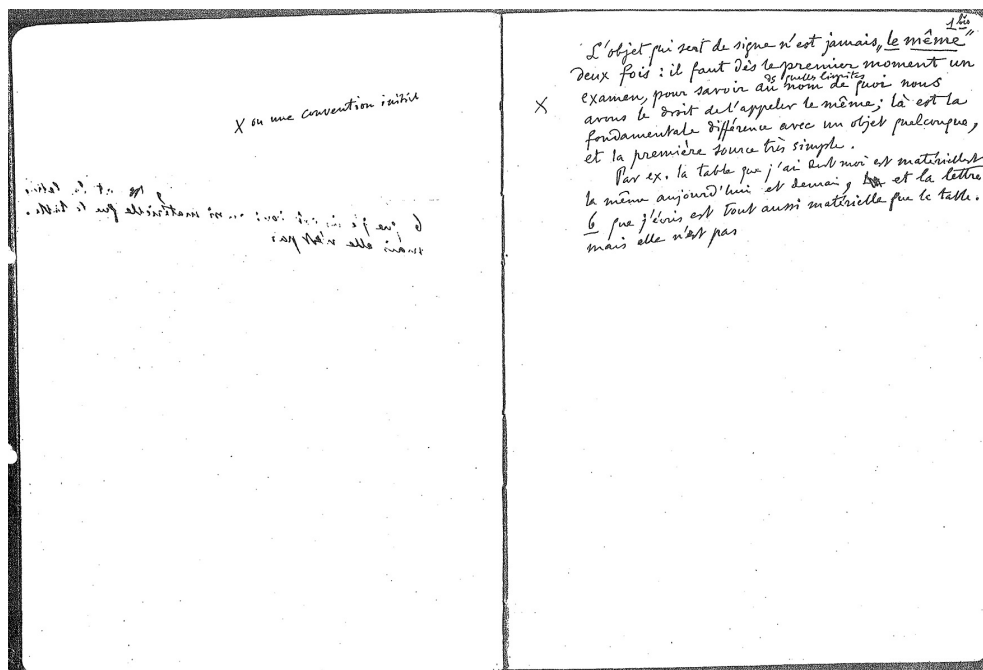 X ou une convention initiale
1 bis
L'objet qui sert de signe n'est jamais „le même”
deux fois : il faut dès le premier moment un
examen, pour savoir ds quelles limites au nom de quoi nous
X
avons le droit de l'appeler le même ; là est la
fondamentale différence avec un objet quelconque,
et la première source très simple.
Par ex. la table que j'ai devt moi est matériellement
la même aujourd'hui et demain, et la lettre
b que j'écris est tout aussi matérielle que la table.
mais elle n'est pas